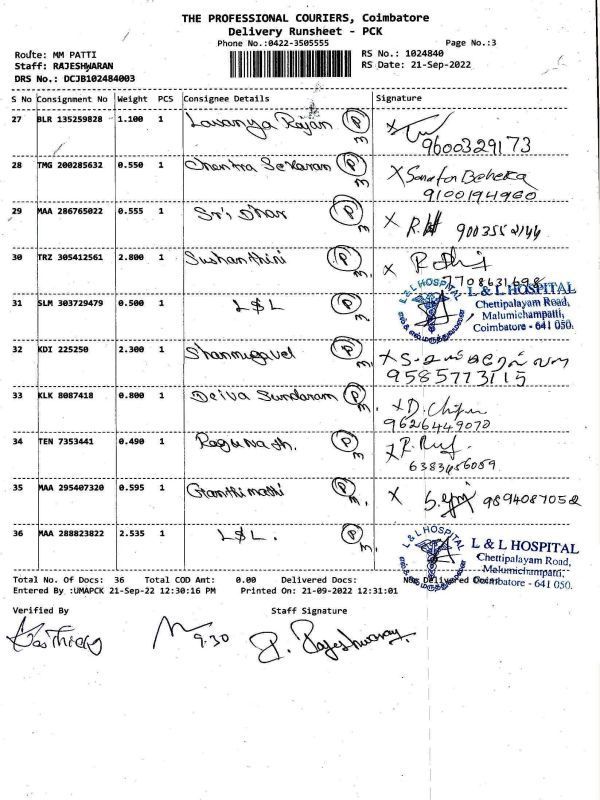 THE PROFESSIONAL COURIERS, Coimbatore
Delivery Runsheet - PCK
Phone No.:0422-3505555 Page No.:3
Route: MM PATTI RS No.: 1024840
Staff: RAJESHWARAN RS Date: 21-Sep-2022
DRS No.: DCJB102484003
S No Consignment No Weight PCS Consignee Details Signature
27 BLR 135259828 1.100 1 Lavanya Rajan P
9600329173
28 TMG 200285632 0.550 1 Chentra Sekaran P m X
9100194960
29 MAA 286765022 0.555 1 Sri Dhar P X R. 9003552144
30 TRZ 305412561 2.800 1 Sushanthini P m X
7708631698
31 SLM 303729479 0.500 1 L&L P m
L & L HOSPITAL
L & L HOSPITAL
Chettipalayam Road,
Malumichampatti,
Coimbatore - 641 050.
32 KDI 225250 2.300 1 Shanmugavel P m X
9585773115
33 KLK 8087418 0.800 1 Deiva Sundaram P m. X D.
9626449070
34 TEN 7353441 0.490 1 Ragunath. P m X R.
6383456059
35 MAA 295407320 0.595 1 Gamthimathi P m. X 9894087052
36 MAA 288823822 2.535 1 L&L. P m.
L & L HOSPITAL
L & L HOSPITAL
Chettipalayam Road,
Malumichampatti,
Coimbatore - 641 050.
Total No. Of Docs: 36 Total COD Amt: 0.00 Delivered Docs: Non Delivered Docs:
Entered By :UMAPCK 21-Sep-22 12:30:16 PM Printed On: 21-09-2022 12:31:01
Verified By Staff Signature
9.30 P. Rajeshwaran